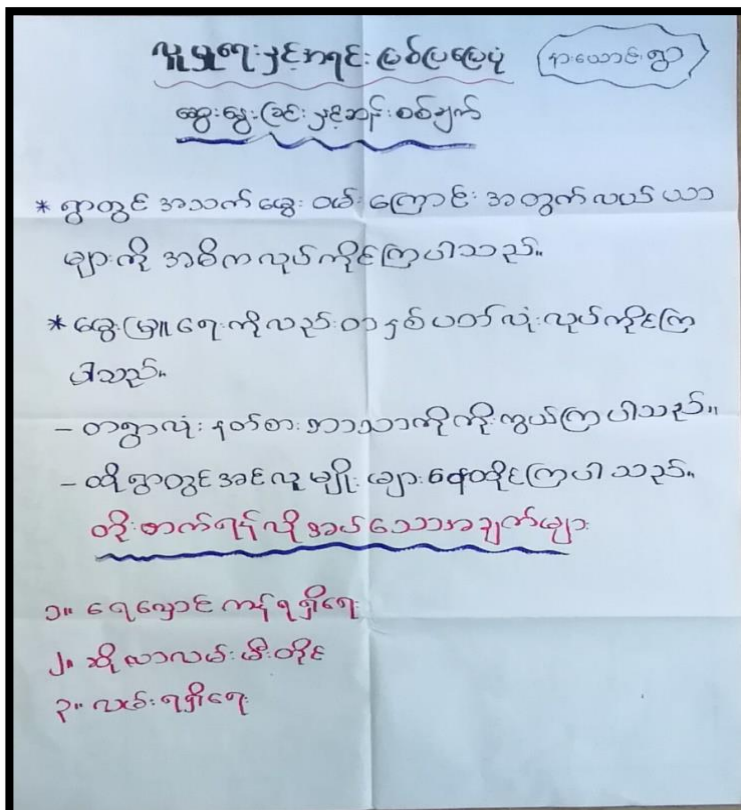 လူမှုရေးနှင့်အရင်းမြစ်ပြမြေပုံ
နားယောင်းရွာ
ဆွေးနွေးခြင်းနှင့်ဆန်းစစ်ချက်
* ရွာတွင် အသက်မွေး ဝမ်းကြောင်း အတွက်လယ်ယာ
များကို အဓိကလုပ်ကိုင်ကြပါသည်။
* မွေးမြူရေးကိုလည်းတနှစ်ပတ်လုံးလုပ်ကိုင်ကြ
ပါသည်။
- တရွာလုံး နတ်စားဘာသာကိုကိုးကွယ်ကြပါသည်။
- ထိုရွာတွင်အင်လူမျိုးများနေထိုင်ကြပါသည်။
တိုးတက်ရန်လိုအပ်သောအချက်များ
၁။ ရေလှောင်ကန်ရရှိရေး
၂။ ဆိုလာလမ်းမီးတိုင်
၃။ လမ်းရရှိရေး